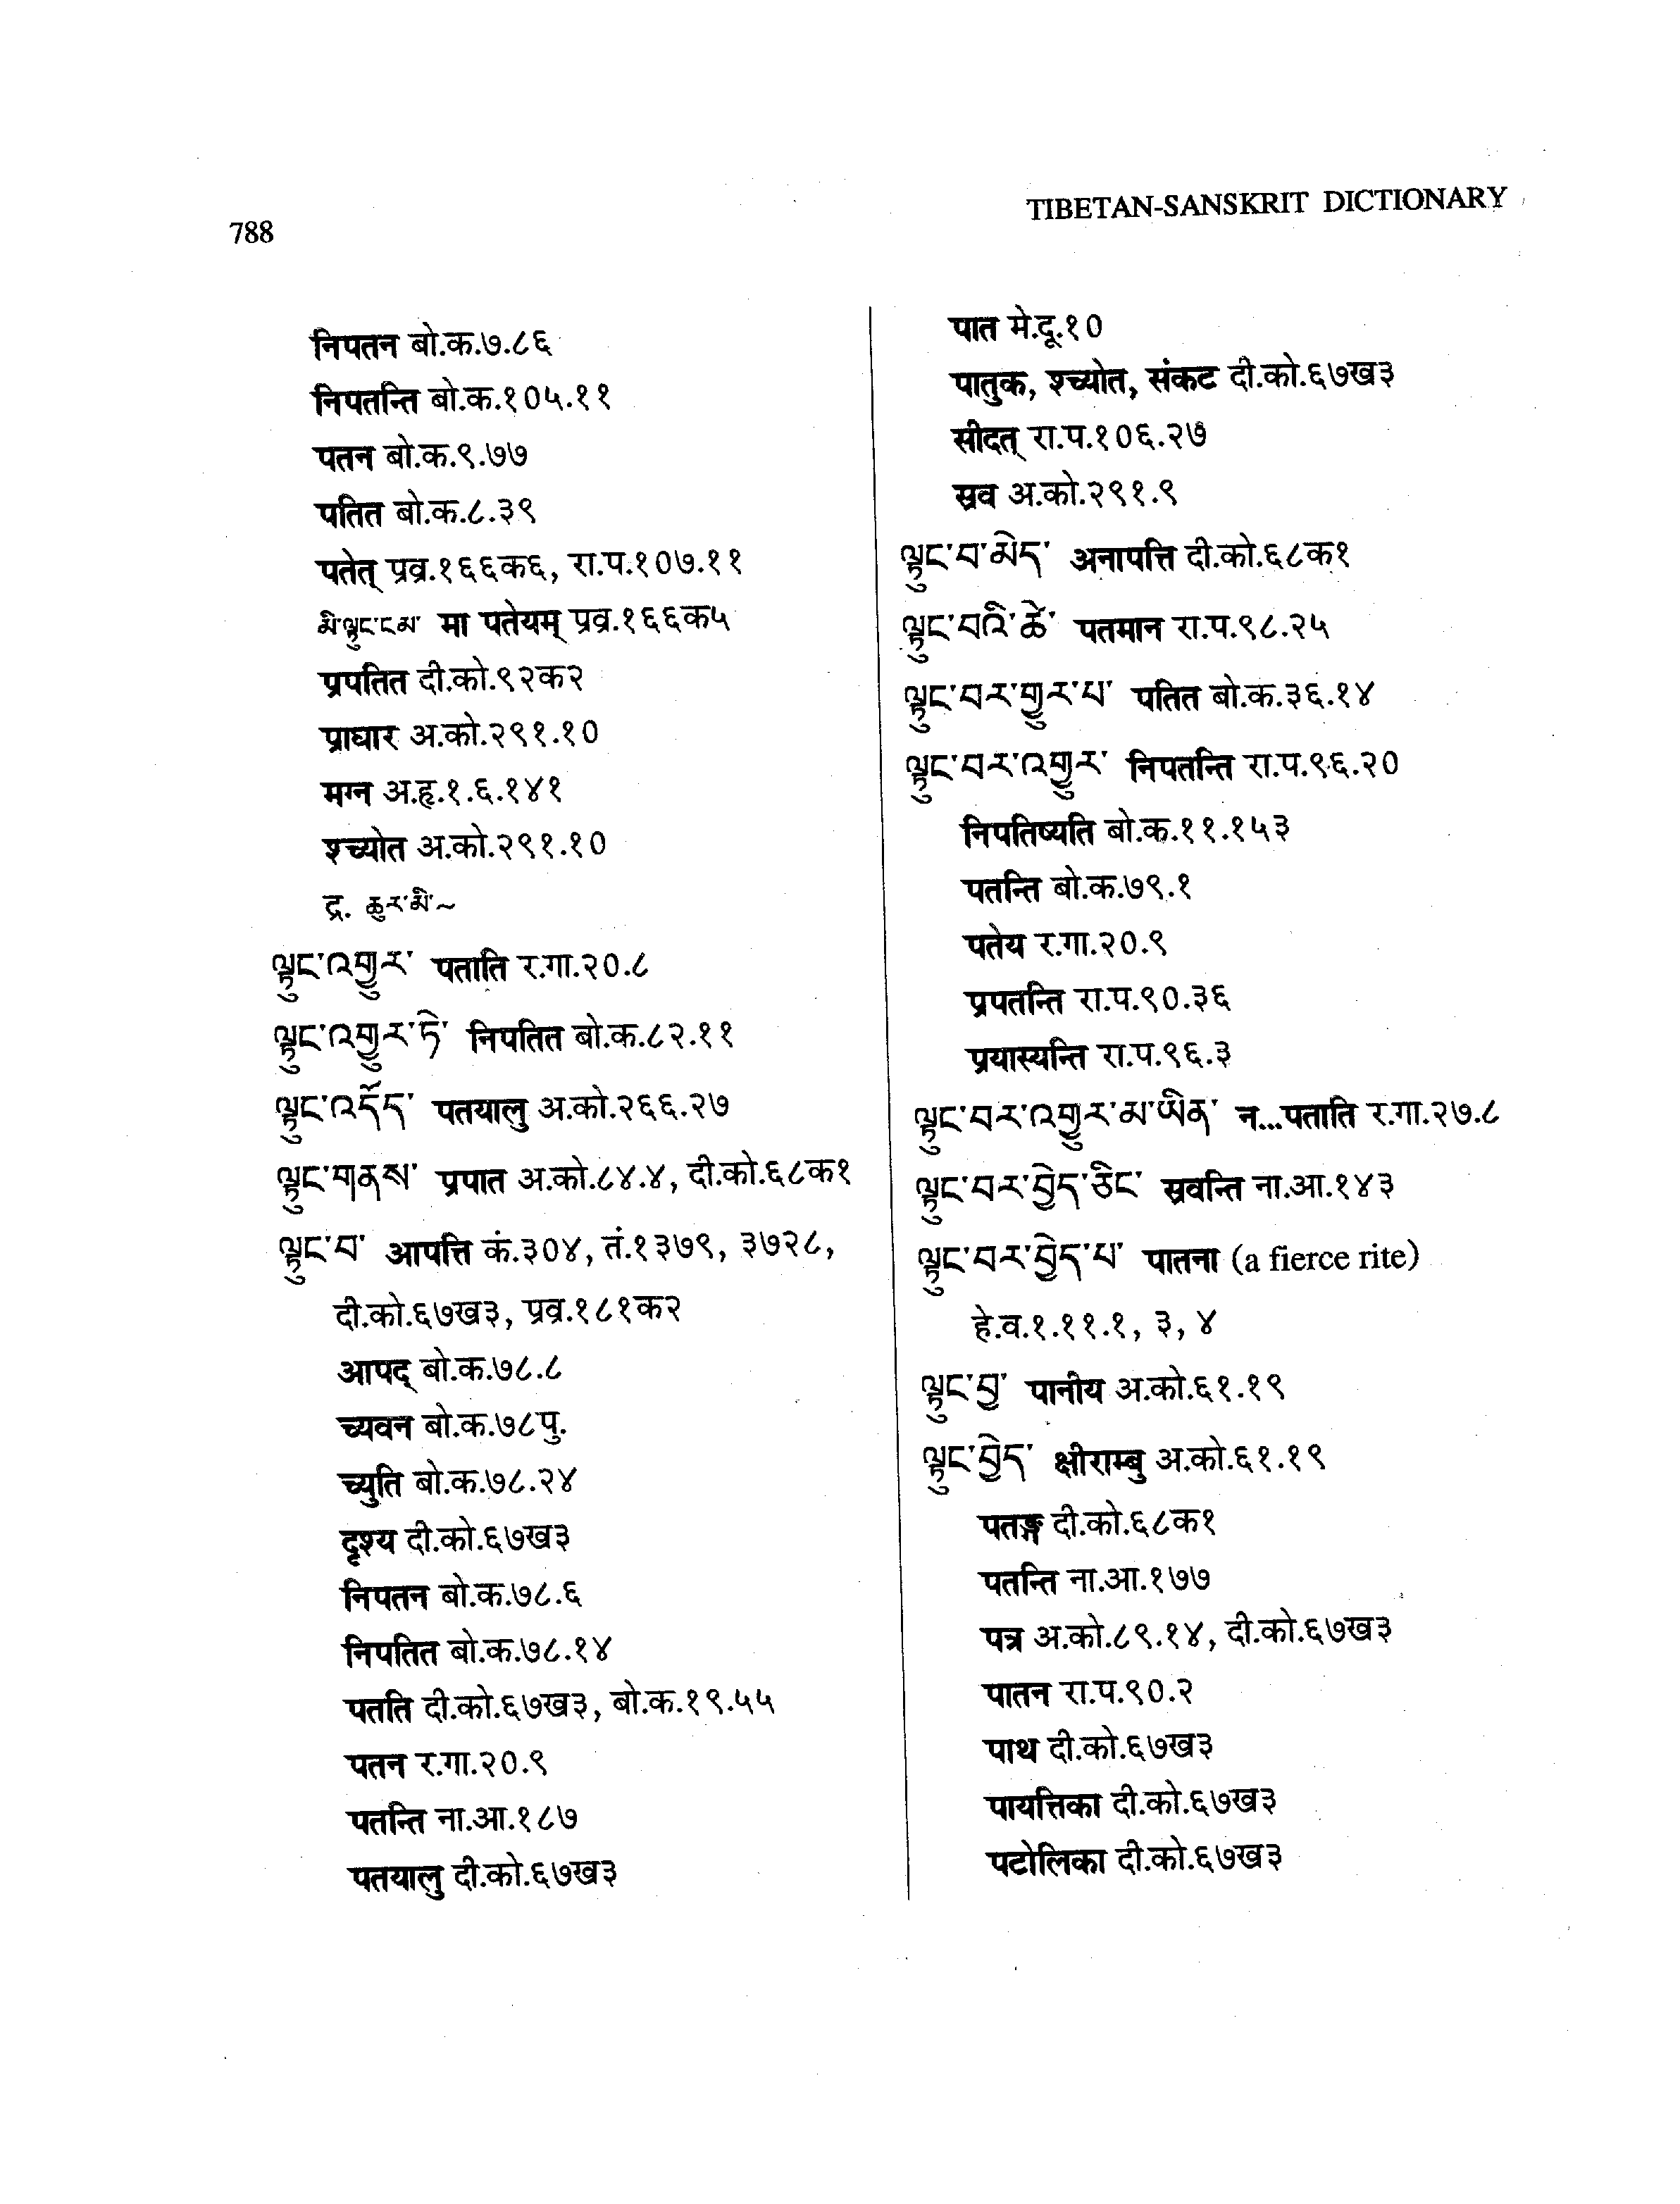 788
TIBETAN-SANSKRIT DICTIONARY
निपतन बो.क.७.८६
निपतन्ति बो.क.१०५.११
पतन बो.क.९.७७
पतित बो.क.८.३९
पतेत् प्रव्र.१६६क६, रा.प.१०७.११
མི་ལྟུང་ངམ་ मा पतेयम् प्रव्र.१६६क५
प्रपतित दी.को.९२क२
प्राघार अ.को.२९१.१०
मग्न अ.हृ.१.६.१४१
श्च्योत अ.को.२९१.१०
द्र. ཆུར་མི་~
ལྟུང་འགྱུར་ पताति र.गा.२०.८
ལྟུང་འགྱུར་ཏེ་ निपतित बो.क.८२.११
ལྟུང་འདོད་ पतयालु अ.को.२६६.२७
ལྟུང་གནས་ प्रपात अ.को.८४.४, दी.को.६८क१
ལྟུང་བ་ आपत्ति कं.३०४, तं.१३७९, ३७२८,
दी.को.६७ख३, प्रव्र.१८१क२
आपद् बो.क.७८.८
च्यवन बो.क.७८पु.
च्युति बो.क.७८.२४
दृश्य दी.को.६७ख३
निपतन बो.क.७८.६
निपतित बो.क.७८.१४
पतति दी.को.६७ख३, बो.क.१९.५५
पतन र.गा.२०.९
पतन्ति ना.आ.१८७
पतयालु दी.को.६७ख३
पात मे.दू.१०
पातुक, श्च्योत, संकट दी.को.६७ख३
सीदत् रा.प.१०६.२७
स्रव अ.को.२९१.९
ལྟུང་བ་མེད་ अनापत्ति दी.को.६८क१
ལྟུང་བའི་ཚེ་ पतमान रा.प.९८.२५
ལྟུང་བར་གྱུར་པ་ पतित बो.क.३६.१४
ལྟུང་བར་འགྱུར་ निपतन्ति रा.प.९६.२०
निपतिष्यति बो.क.११.१५३
पतन्ति बो.क.७९.१
पतेय र.गा.२०.९
प्रपतन्ति रा.प.९०.३६
प्रयास्यन्ति रा.प.९६.३
ལྟུང་བར་འགྱུར་མ་ཡིན་ न...पताति र.गा.२७.८
ལྟུང་བར་བྱེད་ཅིང་ स्रवन्ति ना.आ.१४३
ལྟུང་བར་བྱེད་པ་ पातना (a fierce rite)
हे.व.१.११.१, ३, ४
ལྟུང་བྱ་ पानीय अ.को.६१.१९
ལྟུང་བྱེད་ क्षीराम्बु अ.को.६१.१९
पतङ्ग दी.को.६८क१
पतन्ति ना.आ.१७७
पत्र अ.को.८९.१४, दी.को.६७ख३
पातन रा.प.९०.२
पाथ दी.को.६७ख३
पायत्तिका दी.को.६७ख३
पटोलिका दी.को.६७ख३